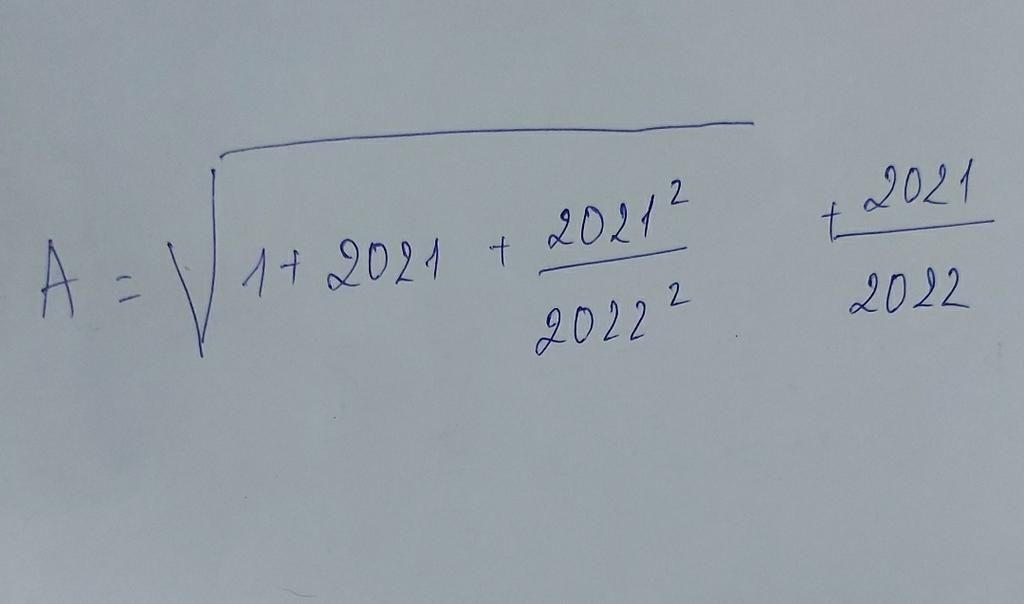 A = √(1 + 2021 + 2021²/2022²) + 2021/2022